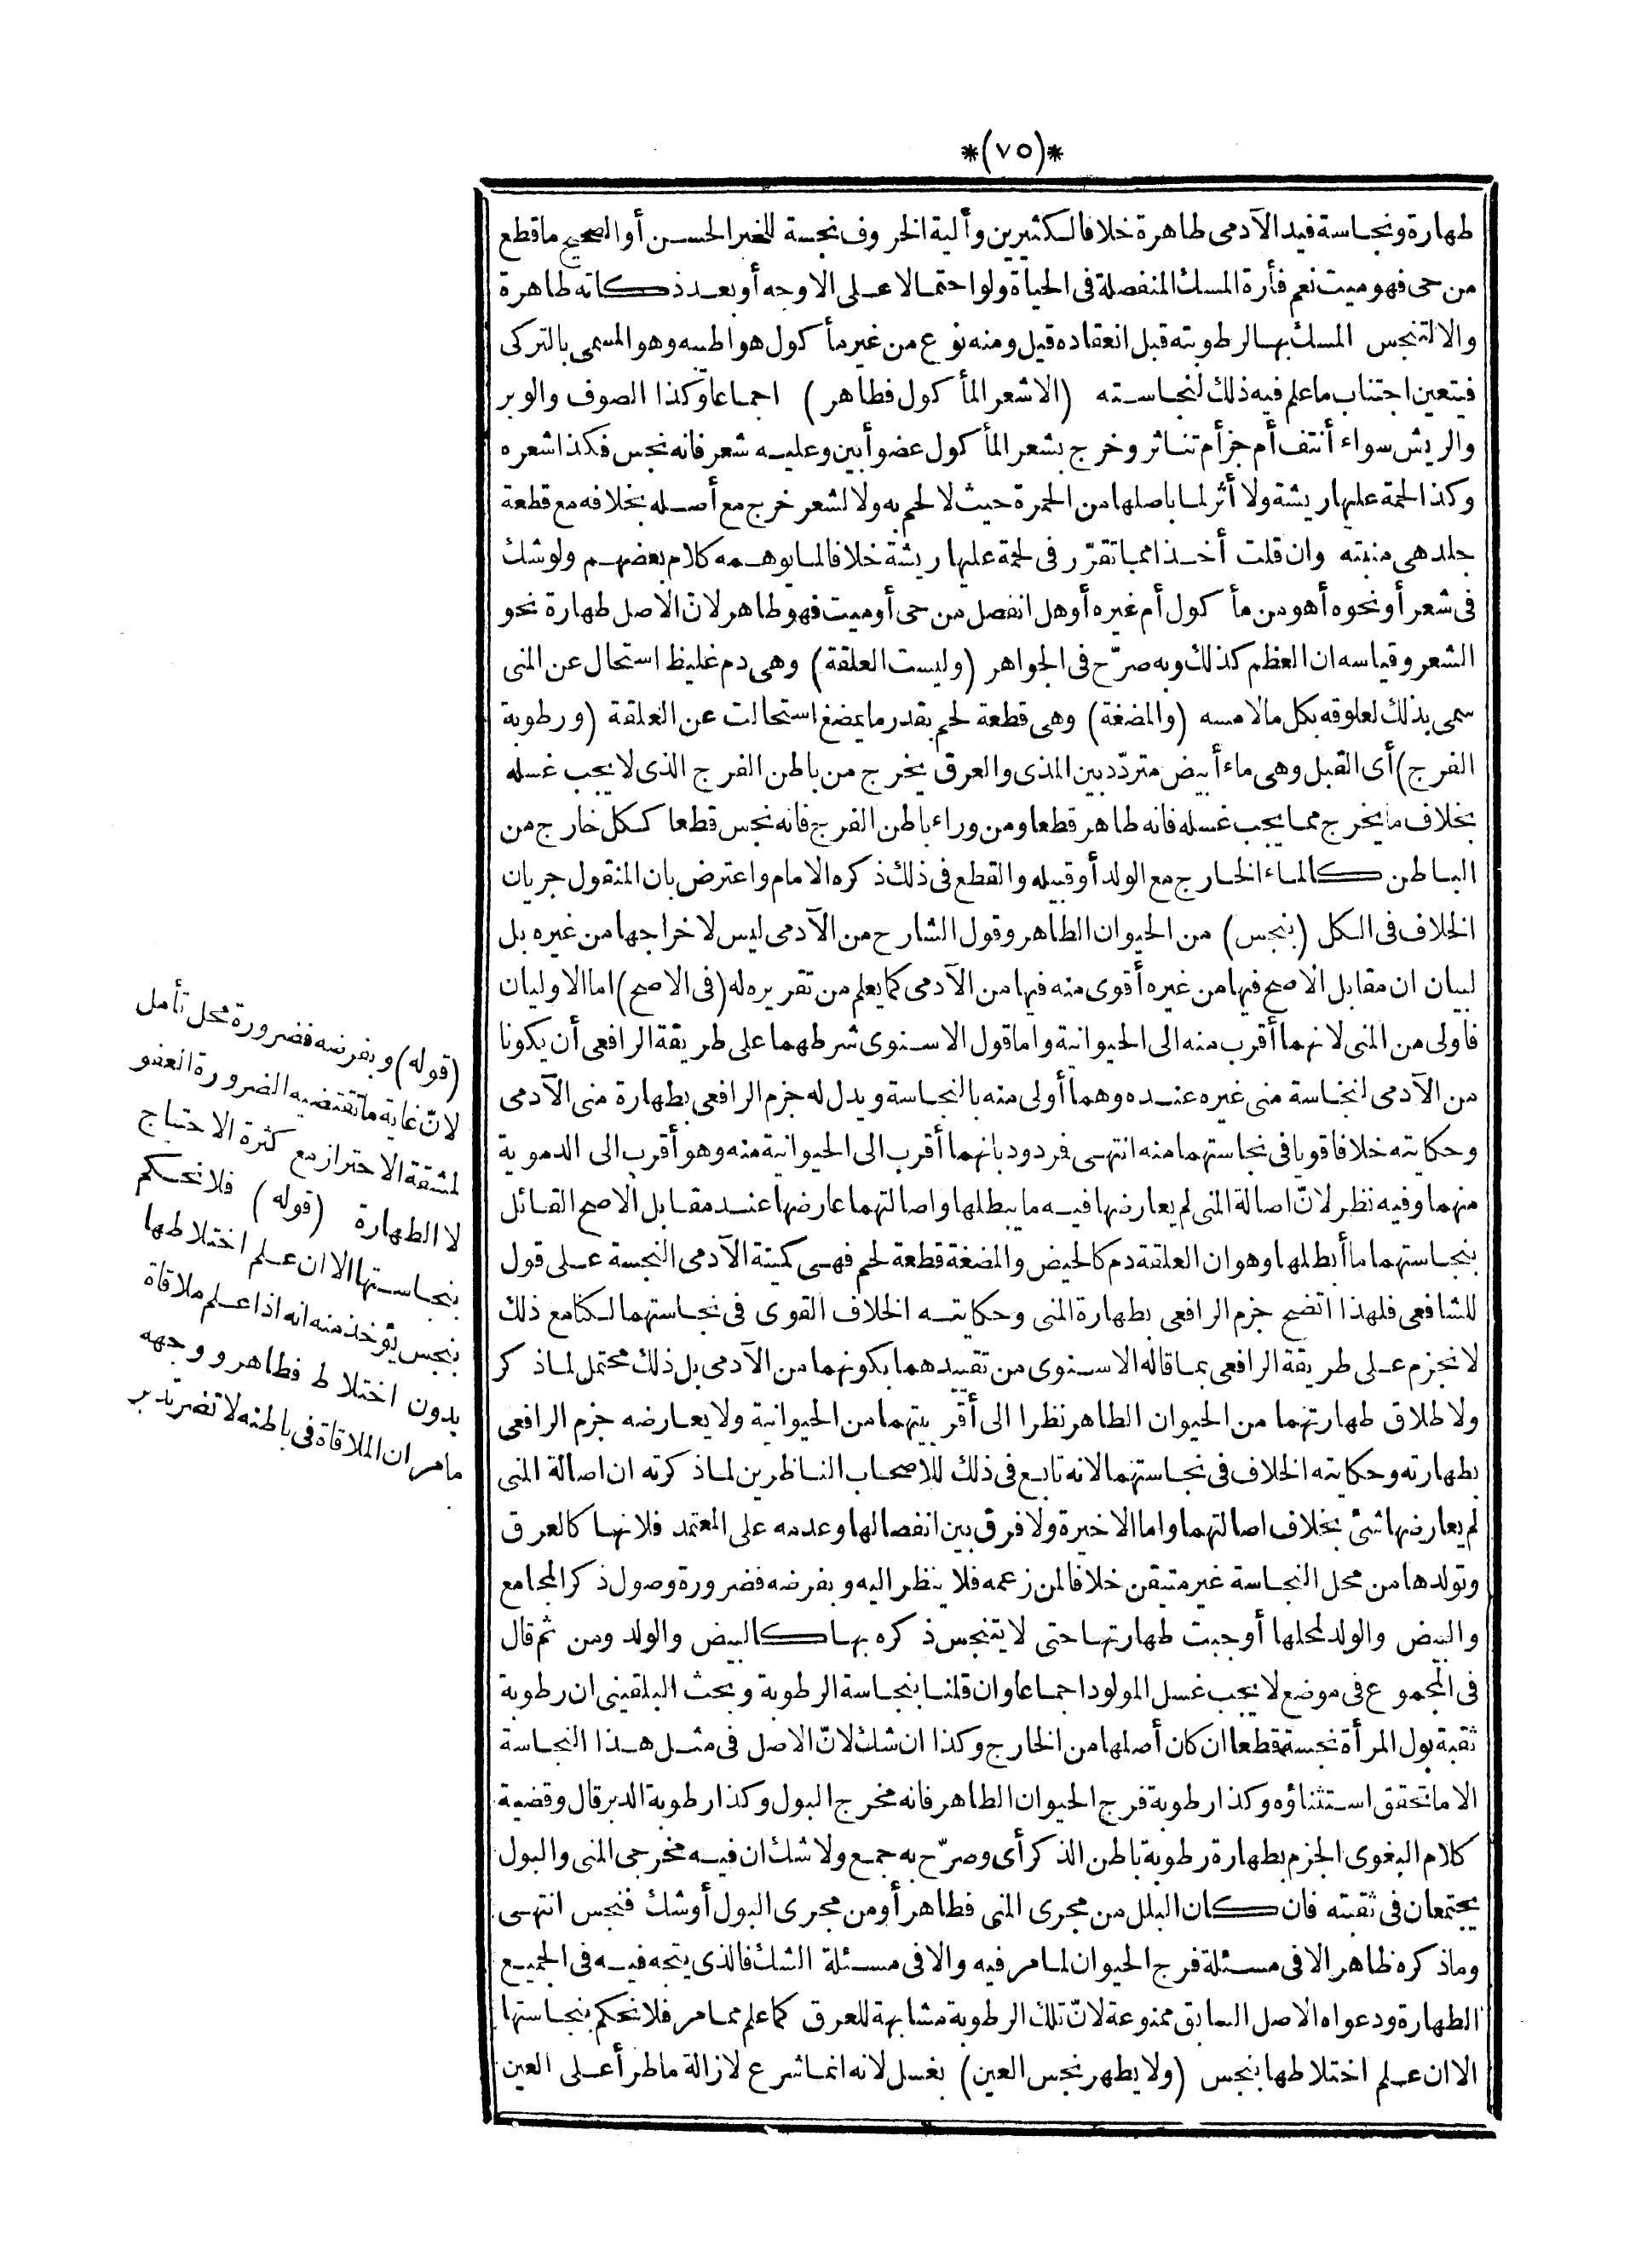 *(٧٥)*
طهارة ونجاسة فيد الآدمى طاهرة خلافا لكثيرين وألية الخروف نجسة للخبر الحسن أو الصحيح ما قطع
من حى فهو ميت نعم فأرة المسك المنفصلة فى الحياة ولو احتمالا على الاوجه أو بعد ذكاته طاهرة
والا لتنجس المسك بها لرطوبته قبل انعقاده قيل ومنه نوع من غير مأكول هو اطيبه وهو المسمى بالتركى
فيتعين اجتناب ما علم فيه ذلك لنجاسته (الا شعر المأكول فطاهر) اجماعا وكذا الصوف والوبر
والريش سواء أنتف أم جز أم تناثر وخرج بشعر المأكول عضو أبين وعليه شعر فانه نجس فكذا شعره
وكذا لحمة عليها ريشة ولا أثر لما باصلها من الحمرة حيث لا لحم به ولا لشعر خرج مع أصله بخلافه مع قطعة
جلد هى منبته وان قلت أخذا مما تقرّر فى لحمة عليها ريشة خلافا لما يوهمه كلام بعضهم ولو شك
فى شعر أو نحوه أهو من مأكول أم غيره أو هل انفصل من حى أو ميت فهو طاهر لانّ الاصل طهارة نحو
الشعر وقياسه ان العظم كذلك وبه صرّح فى الجواهر (وليست العلقة) وهى دم غليظ استحال عن المنى
سمى بذلك لعلوقه بكل ما لامسه (والمضغة) وهى قطعة لحم بقدر ما يمضغ استحالت عن العلقة (ورطوبة
الفرج) أى القبل وهى ماء أبيض متردّد بين المذى والعرق يخرج من باطن الفرج الذى لا يجب غسله
بخلاف ما يخرج مما يجب غسله فانه طاهر قطعا ومن وراء باطن الفرج فانه نجس قطعا ككل خارج من
الباطن كالماء الخارج مع الولد أو قبيله والقطع فى ذلك ذكره الامام واعترض بان المنقول جريان
الخلاف فى الكل (بنجس) من الحيوان الطاهر وقول الشارح من الآدمى ليس لاخراجها من غيره بل
لبيان ان مقابل الاصح فيها من غيره أقوى منه فيها من الآدمى كما يعلم من تقريره له (فى الاصح) اما الاوليان
فاولى من المنى لانهما أقرب منه الى الحيوانية واما قول الاسنوى شرطهما على طريقة الرافعى أن يكونا
من الآدمى لنجاسة منى غيره عنده وهما أولى منه بالنجاسة ويدل له جزم الرافعى بطهارة منى الآدمى
وحكايته خلافا قويا فى نجاستهما منه انتهى فمردود بانهما أقرب الى الحيوانية منه وهو أقرب الى الدموية
منهما وفيه نظر لانّ اصالة المنى لم يعارضها فيه ما يبطلها واصالتهما عارضها عند مقابل الاصح القائل
بنجاستهما ما أبطلها وهو ان العلقة دم كالحيض والمضغة قطعة لحم فهى كميتة الآدمى النجسة على قول
للشافعى فلهذا اتضح جزم الرافعى بطهارة المنى وحكايته الخلاف القوى فى نجاستهما لكنا مع ذلك
لا نجزم على طريقة الرافعى بما قاله الاسنوى من تقييدهما بكونهما من الآدمى بل ذلك محتمل لما ذكر
ولاطلاق طهارتهما من الحيوان الطاهر نظرا الى أقربيتهما من الحيوانية ولا يعارضه جزم الرافعى
بطهارته وحكايته الخلاف فى نجاستهما لانه تابع فى ذلك للاصحاب الناظرين لما ذكرته ان اصالة المنى
لم يعارضها شئ بخلاف اصالتهما واما الاخيرة ولا فرق بين انفصالها وعدمه على المعتمد فلانها كالعرق
وتولدها من محل النجاسة غير متيقن خلافا لمن زعمه فلا ينظر اليه وبفرضه فضرورة وصول ذكر المجامع
والبيض والولد لمحلها أوجبت طهارتها حتى لا يتنجس ذكره بها كالبيض والولد ومن ثم قال
فى المجموع فى موضع لا يجب غسل المولود اجماعا وان قلنا بنجاسة الرطوبة وبحث البلقينى ان رطوبة
ثقبة بول المرأة نجسة قطعا ان كان أصلها من الخارج وكذا ان شك لانّ الاصل فى مثل هذا النجاسة
الا ما تحقق استثناؤه وكذا رطوبة فرج الحيوان الطاهر فانه مخرج البول وكذا رطوبة الدبر قال وقضية
كلام البغوى الجزم بطهارة رطوبة باطن الذكر أى وصرّح به جمع ولا شك ان فيه مخرجى المنى والبول
يجتمعان فى ثقبته فان كان البلل من مجرى المنى فطاهر أو من مجرى البول أو شك فنجس انتهى
وما ذكره ظاهر الا فى مسئلة فرج الحيوان لما مر فيه والا فى مسئلة الشك فالذى يتجه فيه فى الجميع
الطهارة ودعواه الاصل السابق ممنوعة لانّ تلك الرطوبة مشابهة للعرق كما علم مما مر فلا نحكم بنجاستها
الا ان علم اختلاطها بنجس (ولا يطهر نجس العين) بغسل لانه انما شرع لازالة ما طرأ على العين
(قوله) وبفرضه فضرورة محل تأمل
لانّ غاية ما تقتضيه الضرورة العفو
لمشقة الاحتراز مع كثرة الاحتياج
لا الطهارة (قوله) فلا نحكم
بنجاستها الا ان علم اختلاطها
بنجس يؤخذ منه انه اذا علم ملاقاة
بدون اختلاط فطاهر ووجهه
ما مر ان الملاقاة فى باطنه لا تضر تدبر